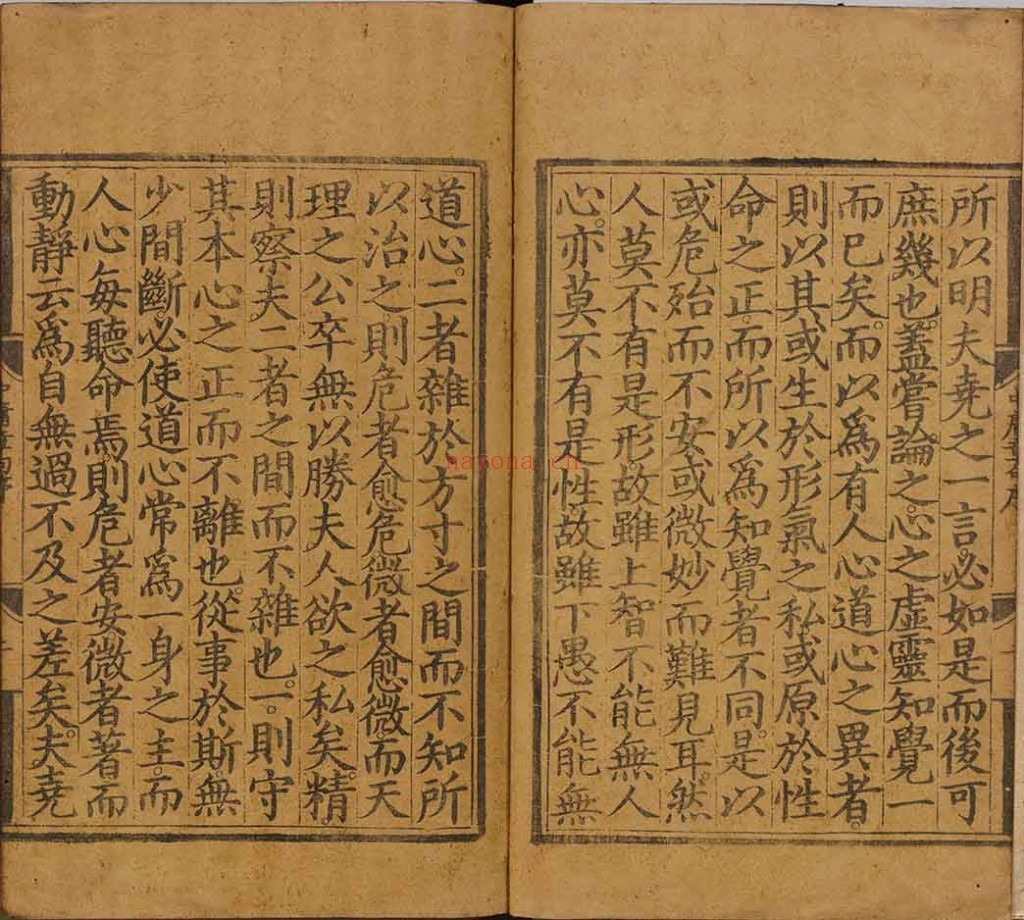 所以明夫堯之一言必如是而後可
庶幾也。蓋嘗論之。心之虛靈知覺一
而已矣。而以爲有人心道心之異者。
則以其或生於形氣之私或原於性
命之正。而所以爲知覺者不同。是以
或危殆而不安或微妙而難見耳。然
人莫不有是形故雖上智不能無人
心。亦莫不有是性。故雖下愚不能無
道心。二者雜於方寸之間而不知所
以治之則危者愈危微者愈微。而天
理之公卒無以勝夫人欲之私矣。精
則察夫二者之間而不雜也。一。則守
其本心之正而不離也。從事於斯。無
少間斷。必使道心常爲一身之主。而
人心每聽命焉。則危者安微者著而
動靜云爲自無過不及之差矣。夫堯
nayona.cn